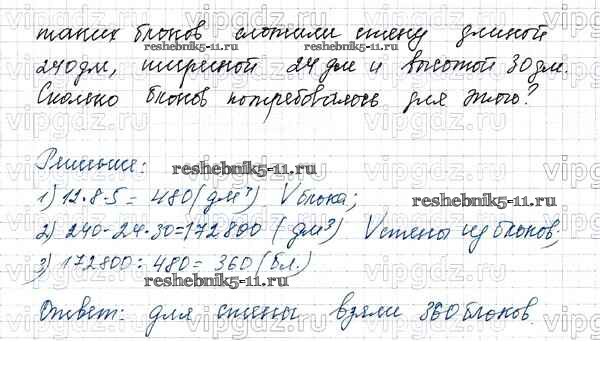 таких блоков сложили стену длиной
240дм, шириной 24 дм и высотой 30дм.
Сколько блоков потребовалось для этого?
Решение:
1) 12·8·5 = 480 (дм³) V блока;
2) 240·24·30=172800 (дм³) V стены из блоков;
3) 172800:480= 360 (бл.)
Ответ: для стены взяли 360 блоков.
reshebnik5-11.ru
reshebnik5-11.ru
reshebnik5-11.ru
reshebnik5-11.ru
reshebnik5-11.ru
vipgdz.ru